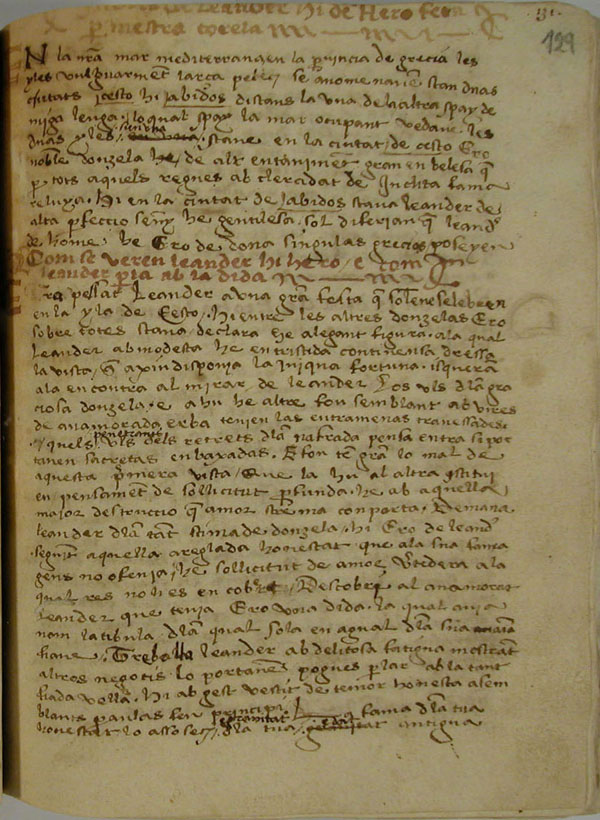 de leandre hi de Hero feta
p mestra corela
129
N la nra mar mediterranea en la puincia de grecia les
yles vulguarmet larca pelec se anomenaven stan duas
ciutats sesto hi labidos distans la una de la altra spay de
miga lengua lo qual spay la mar ocupant vedava les
duas yles stave en la ciutat de cesto Ero
noble donzela he de alt entaniment gran en belesa q
p tots aquels regnes ab claredat de Inclita fama
reluya. Hi en la ciutat de labidos stava leander de
alta pfeccio seny he gentilesa. sol diferian q leander
de home he Ero de dona singulas gracies poseyen
Com se veren leander hi hero e com
leander pla ab la dida
leander a una gran festa q
en la yla de Cesto. Hi entre les altres donzelas Ero
sobre totes stava declara he alegant figura a la qual
Leander ab modesta he entristida continensa dressa
la vista q axi n disponia la iniqua fortuna. isquera
a la encontra al mirar de leander los uls dla gra
ciosa donzela e a hu he altre fou semblant as vires
de anamorada erba tenien las entramenas travesades.
quels penetrants uls dels secrets dla nafrada pensa entra si por
tanen sacretas enbaxadas. E fon ta gran lo mal de
aquesta primera vista Que la hu al altra
en pensament de sollicitut pfunda he ab aquella
major destruccio q amor strema conporta. Demana
leander dla tant stimada donzela. hi Ero de leander
seguint aquella areglada honestat que a la sua fama
gens no ofenia he sollicitut de amor a la
qual res no li es en cobert Descobri al anamorat
leander que tenia Ero una dida la qual avia
nom latibula dla qual sola en agual dla sua mara
fiave. Treballa leander ab delitosa fatigua mostrat
altros negocis lo portaven pogues parlar ab la tant
fiada vella. Hi ab gest vestit de temor honesta a sem
blants paraulas feu principi. La fama dla tua
honestat lo asosec dla tua antigua